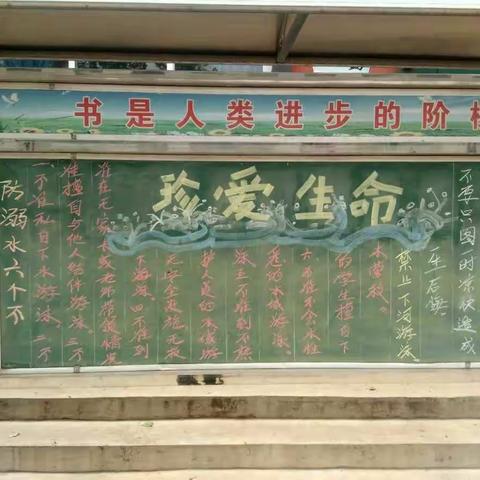 书是人类进步的阶
珍爱生命
防溺水六个不
一不准私自下水游泳。二不
准擅自与他人结伴游泳。三不
准在无家长或老师带领情况
下游泳。四不准到
无安全设施、无救
护人员的水域游
泳。五不准到不熟
悉的水域游泳。
六、不准不会水性
的学生擅自下
水营救。
禁止下河游泳
一生后悔
不要只图一时凉快造成